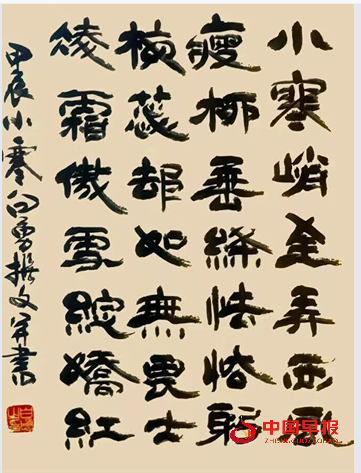 小寒峭至弄西風
瘦柳垂絛怯恪躬
梅蕊却如無畏士
凌霜傲雪綻嬌紅
甲辰小寒白勇撰文并書
中国早报